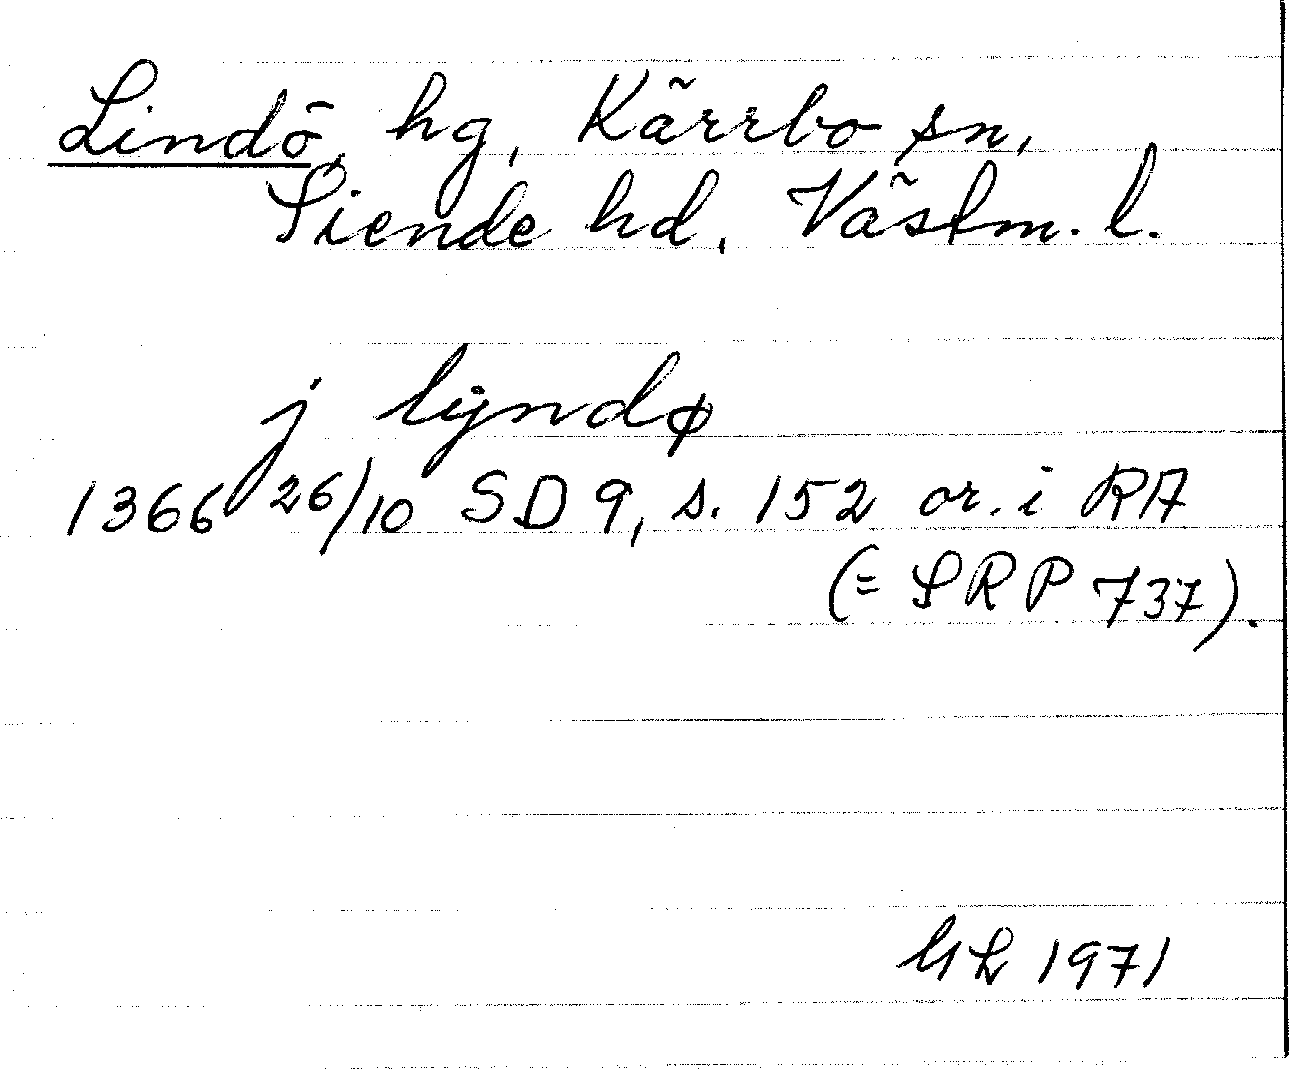 Lindö, hg, Kärrbo sn,
Siende hd, Västm. l.
j lÿndø
1366 26/10 SD 9, s. 152 or. i RA
(= SRP 737).
1971